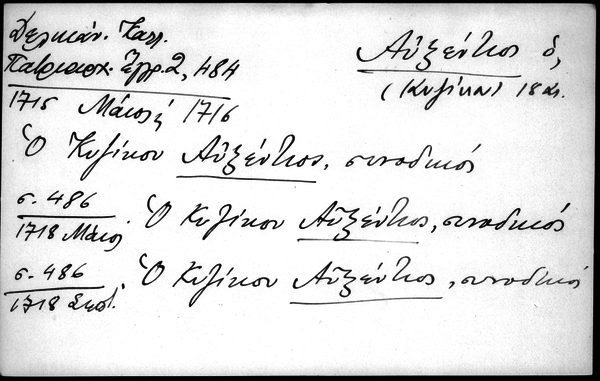 Δελικάν. Καλλ.
Πατριαρχ. Ἔγγρ. 2, 484
Αὐξέντιος ὁ,
(Κυζίκου) 18 αι.
1715 Μάιος 1716
Ὁ Κυζίκου Αὐξέντιος, συνοδικός
σ. 486
1718 Μάιος Ὁ Κυζίκου Αὐξέντιος, συνοδικός
σ. 486
1718 Σεπτ. Ὁ Κυζίκου Αὐξέντιος, συνοδικός